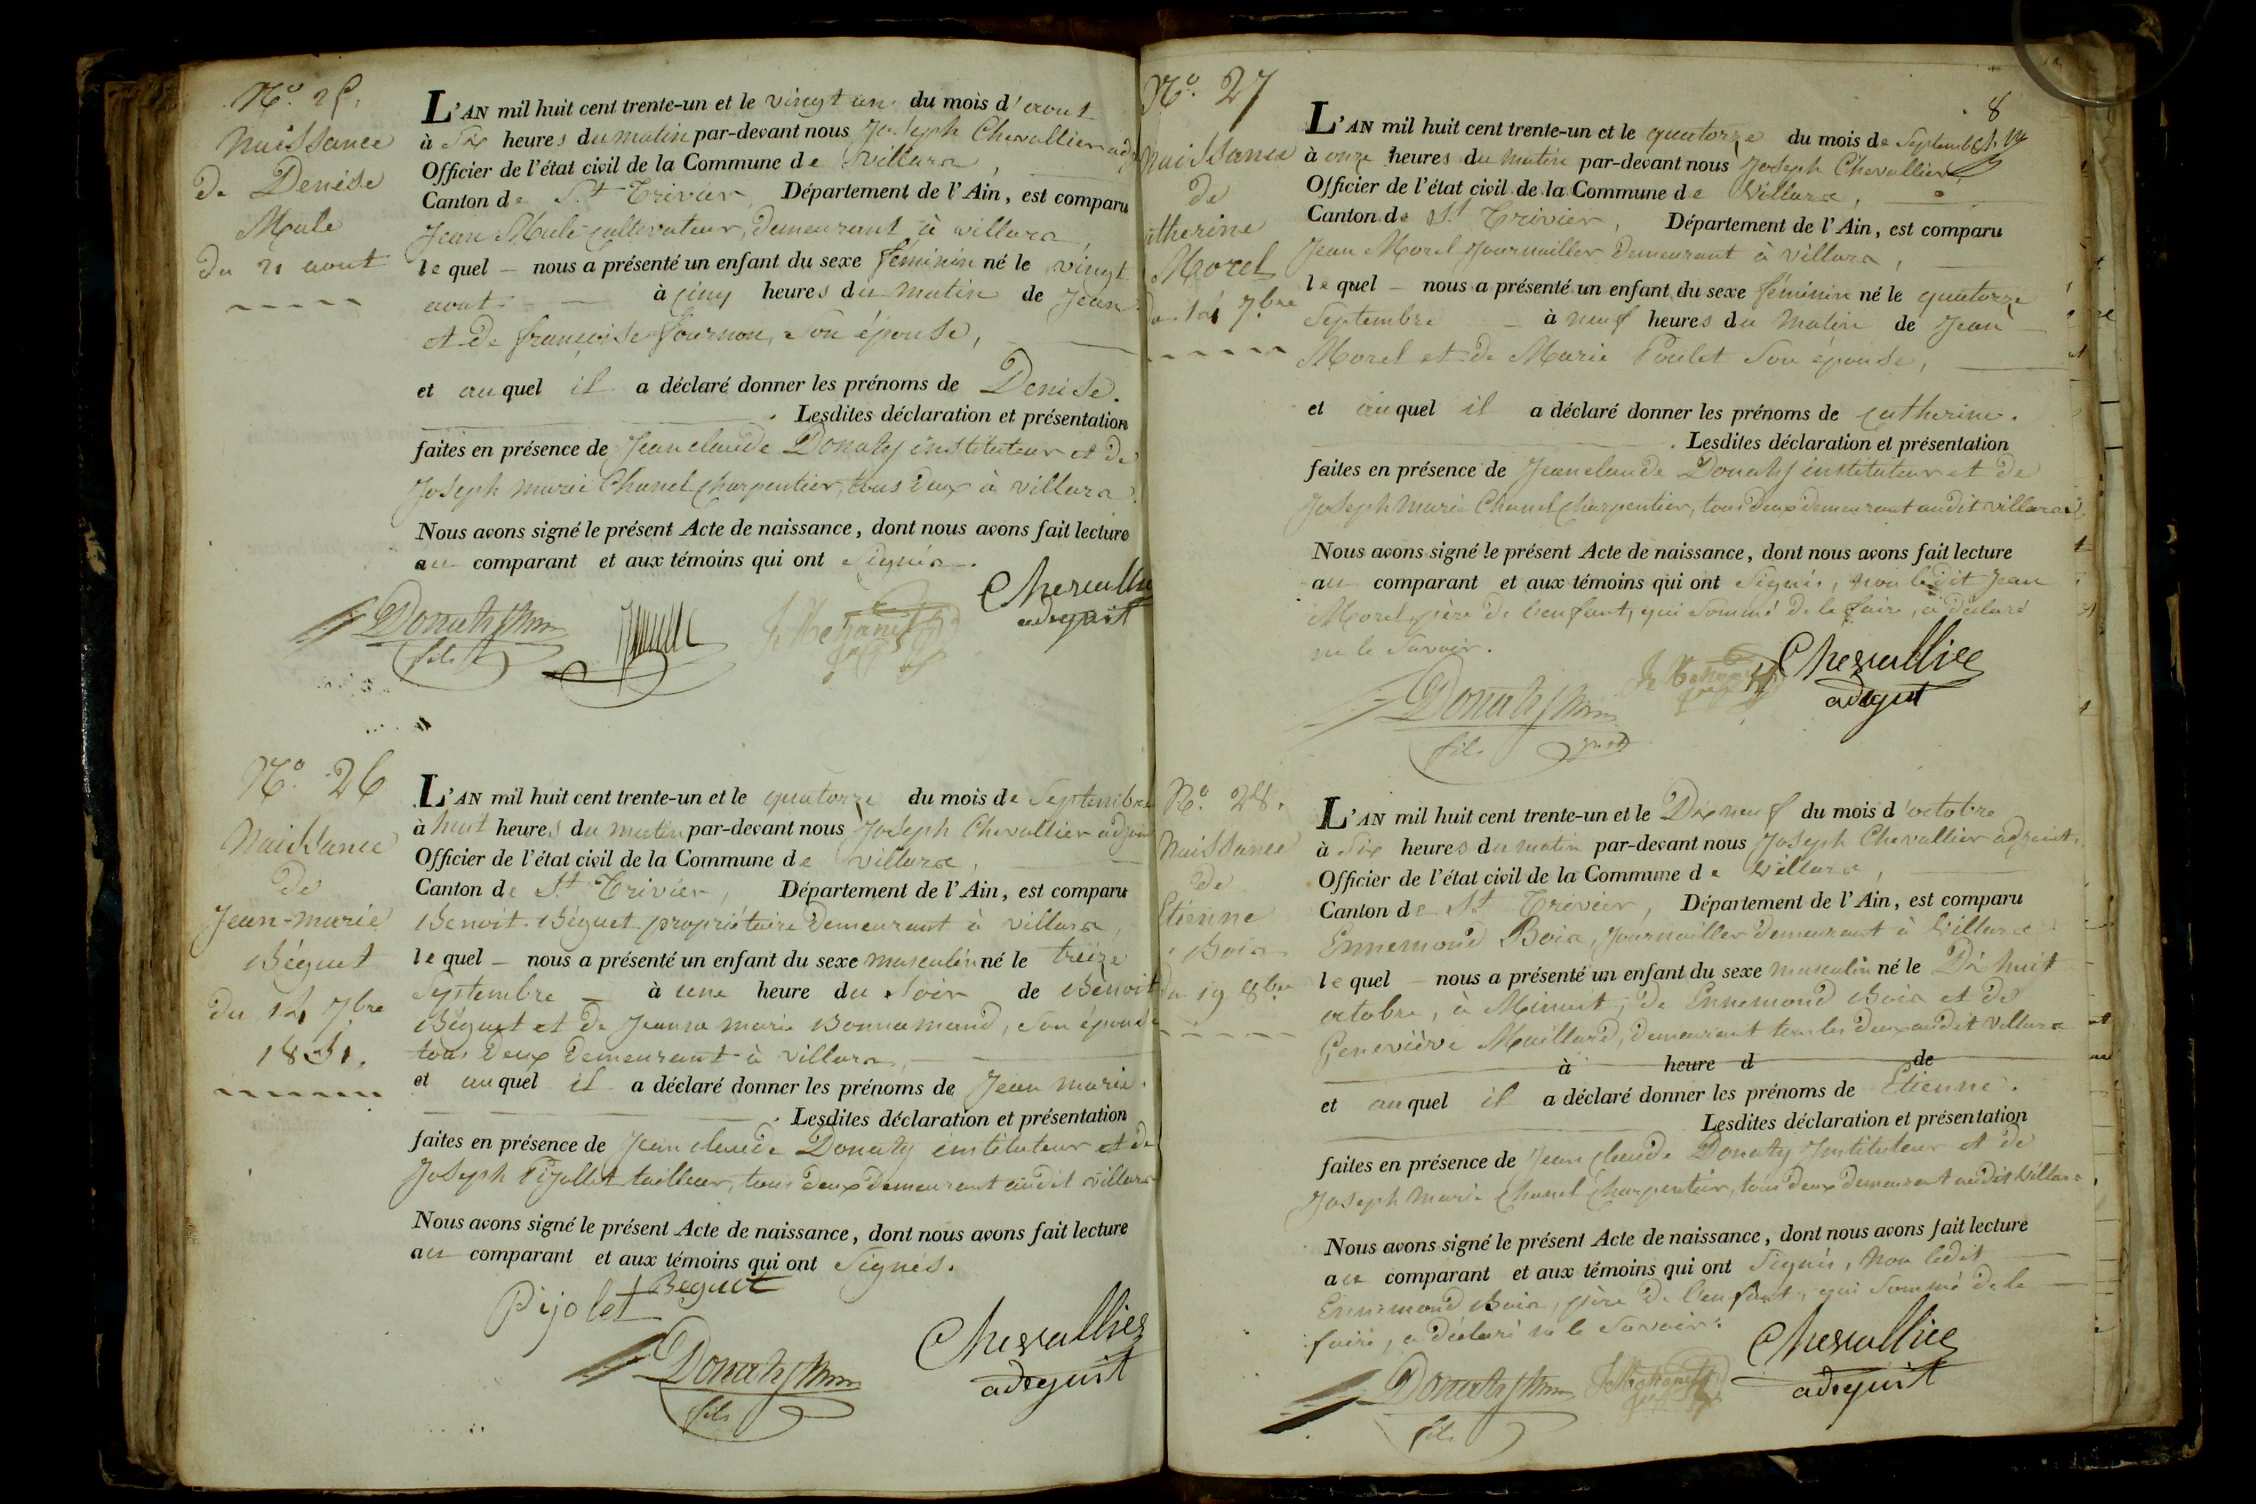 No. 25.
Naissance
de Denise
Mule
du 21 aout
L'AN mil huit cent trente-un et le vingt un du mois d'aout
à Six heures du matin par-devant nous Joseph Chevallier adj
Officier de l'état civil de la Commune de Villars,
Canton de St Trivier, Département de l'Ain, est comparu
Jean Mule cultivateur, demeurant à villars,
lequel – nous a présenté un enfant du sexe féminin né le vingt
aout – à cinq heures du matin de Jean
et de françoise fournon, son épouse,
et auquel il a déclaré donner les prénoms de Denise.
Lesdites déclaration et présentation
faites en présence de Jean claude Donaty instituteur et de
Joseph marie Chanel charpentier, tous deux à villars.
Nous avons signé le présent Acte de naissance, dont nous avons fait lecture
au comparant et aux témoins qui ont Signés.
Donaty
fils
Chevallier
adjoint
No. 26
Naissance
de
Jean-marie
Béguet
du 14 7bre
1831.
L'AN mil huit cent trente-un et le quatorze du mois de Septembre
à huit heures du matin par-devant nous Joseph Chevallier adjoint
Officier de l'état civil de la Commune de villars,
Canton de St Trivier, Département de l'Ain, est comparu
Benoit Béguet propriétaire demeurant à villars,
lequel – nous a présenté un enfant du sexe masculin né le treize
Septembre – à une heure du Soir de Benoit
Béguet et de Jeanne marie Bonnamand, son épouse
tous deux demeurant à villars,
et auquel il a déclaré donner les prénoms de Jean marie.
Lesdites déclaration et présentation
faites en présence de Jean claude Donaty instituteur et de
Joseph Pijollet tailleur, tous deux demeurant audit villars
Nous avons signé le présent Acte de naissance, dont nous avons fait lecture
au comparant et aux témoins qui ont Signés.
Pijolet Beguet
Donaty
fils
Chevallier
adjoint
8
No. 27
Naissance
de
atherine
Morel
du 14 7bre
L'AN mil huit cent trente-un et le quatorze du mois de Septembre
à onze heures du matin par-devant nous Joseph Chevallier
Officier de l'état civil de la Commune de Villars,
Canton de St Trivier, Département de l'Ain, est comparu
Jean Morel Journaillier demeurant à villars,
lequel – nous a présenté un enfant du sexe féminin né le quatorze
Septembre – à neuf heures du matin de Jean
Morel et de Marie Poulet son épouse,
et auquel il a déclaré donner les prénoms de catherine.
Lesdites déclaration et présentation
faites en présence de Jean claude Donaty instituteur et de
Joseph marie Chanel charpentier, tous deux demeurant audit villars
Nous avons signé le présent Acte de naissance, dont nous avons fait lecture
au comparant et aux témoins qui ont Signés, non ledit Jean
Morel père de l'enfant, qui sommé de le faire, a déclaré
ne le Savoir.
Donaty
fils
Chevallier
adjoint
No. 28.
Naissance
de
Etienne
Bois
du 19 8bre
L'AN mil huit cent trente-un et le Dix neuf du mois d'octobre
à Six heures du matin par-devant nous Joseph Chevallier adjoint,
Officier de l'état civil de la Commune de Villars,
Canton de St Trivier, Département de l'Ain, est comparu
Ennemond Bois, Journaillier demeurant à Villars
lequel – nous a présenté un enfant du sexe masculin né le Dix huit
octobre, à Minuit, de Ennemond Bois et de
Geneviève Maillard, demeurant tous les deux audit Villars
à heure d de
et auquel il a déclaré donner les prénoms de Etienne.
Lesdites déclaration et présentation
faites en présence de Jean claude Donaty Instituteur et de
Joseph Marie Chanel Charpentier, tous deux demeurant audit Villars
Nous avons signé le présent Acte de naissance, dont nous avons fait lecture
au comparant et aux témoins qui ont Signés, Non ledit
Ennemond Bois, père de l'enfant, qui Sommé de le
faire, a déclaré ne le Savoir.
Donaty
fils
Chevallier
adjoint